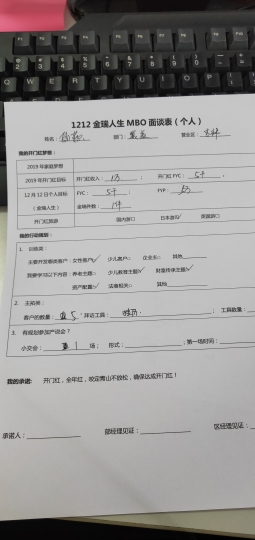 1212 金瑞人生 MBO 面谈表（个人）
姓名： 部门： 营业区：
我的开门红梦想：
2019 年家庭梦想
2019 年开门红目标 开门红收入： ； 开门红 FYC： 5千 。
12 月 12 日个人目标 FYC： 5千 ； FYP：
（金瑞人生） 金瑞件数： 1件
开门红旅游 国内游□ 日本游 泰国游□
我的行动规划：
1. 训练类：
主要开发哪类客户：女性客户 少儿客户□ 企业主□ 其他
我要学习以下内容：养老主题□ 少儿教育主题 财富传承主题
资产配置 法商相关□ 其他
2. 主拓类：
客户的数量： 5 ；拜访工具： ； 工具数量：
3. 有规划参加产说会？
小交会： 1 场； 形式： ，第一场时间：
我的承诺： 开门红，全年红，咬定青山不放松，确保达成开门红！
承诺人： 部经理见证： 区经理见证：